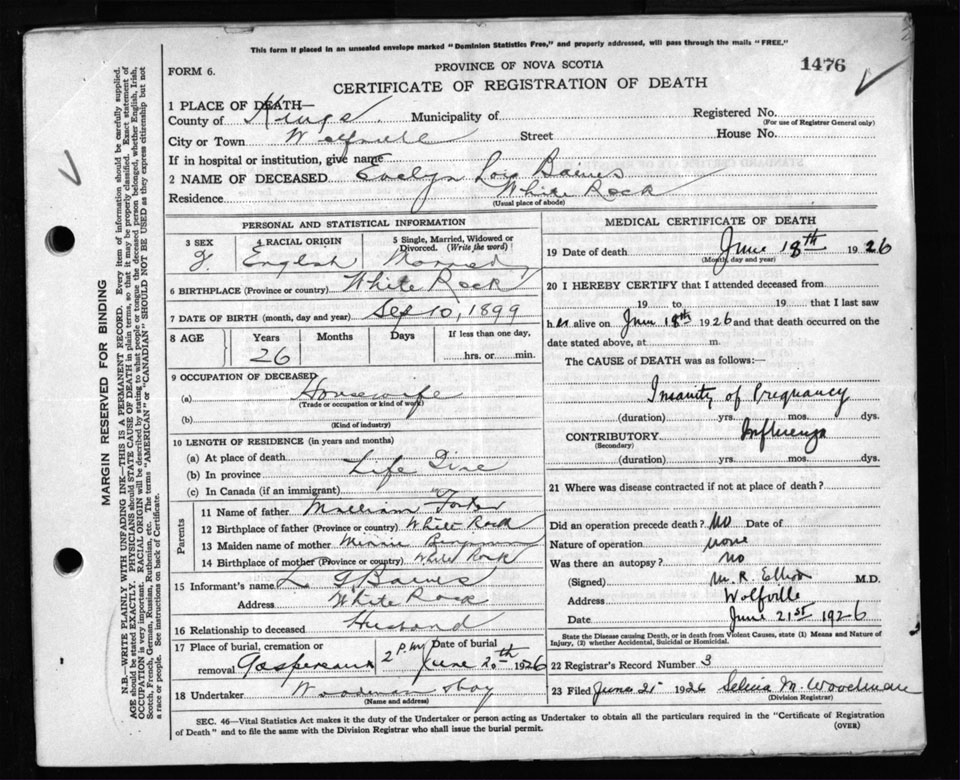 This form if placed in an unsealed envelope marked "Dominion Statistics Free," and properly addressed, will pass through the mails "FREE."
FORM 6.
PROVINCE OF NOVA SCOTIA
1476
CERTIFICATE OF REGISTRATION OF DEATH
1 PLACE OF DEATH—
County of Kings Municipality of Registered No.
(For use of Registrar General only)
City or Town Wolfville Street House No.
If in hospital or institution, give name
2 NAME OF DECEASED Evelyn Lois Baines
Residence White Rock
(Usual place of abode)
PERSONAL AND STATISTICAL INFORMATION
3 SEX 4 RACIAL ORIGIN 5 Single, Married, Widowed or Divorced. (Write the word)
F. English Married
6 BIRTHPLACE (Province or country) White Rock
7 DATE OF BIRTH (month, day and year) Sep 10, 1899
8 AGE Years Months Days If less than one day,
26 hrs. or min.
9 OCCUPATION OF DECEASED
(a) Housewife
(Trade or occupation or kind of work)
(b)
(Kind of industry)
10 LENGTH OF RESIDENCE (in years and months)
(a) At place of death
(b) In province Life Time
(c) In Canada (if an immigrant)
Parents
11 Name of father William
12 Birthplace of father (Province or country) White Rock
13 Maiden name of mother Minnie
14 Birthplace of mother (Province or country) White Rock
15 Informant's name L G Baines
Address White Rock
16 Relationship to deceased Husband
17 Place of burial, cremation or removal Gaspereaux 2 P.M. Date of burial June 20th 1926
18 Undertaker Woodman
(Name and address)
MEDICAL CERTIFICATE OF DEATH
19 Date of death June 18th 1926
(Month, day and year)
20 I HEREBY CERTIFY that I attended deceased from
19 to 19 that I last saw
her alive on June 18th 1926 and that death occurred on the
date stated above, at m.
The CAUSE of DEATH was as follows:—
Insanity of Pregnancy
(duration) yrs. mos. dys.
CONTRIBUTORY Influenza
(Secondary)
(duration) yrs. mos. dys.
21 Where was disease contracted if not at place of death?
Did an operation precede death? No Date of
Nature of operation none
Was there an autopsy? no
(Signed) M. R. Elliott M.D.
Address Wolfville
Date June 21st 1926
State the Disease causing Death, or in death from Violent Causes, state (1) Means and Nature of Injury, (2) whether Accidental, Suicidal or Homicidal.
22 Registrar's Record Number 3
23 Filed June 21 1926 M. Woodman
(Division Registrar)
SEC. 46—Vital Statistics Act makes it the duty of the Undertaker or person acting as Undertaker to obtain all the particulars required in the "Certificate of Registration
of Death" and to file the same with the Division Registrar who shall issue the burial permit.
(OVER)
MARGIN RESERVED FOR BINDING
N.B.—WRITE PLAINLY WITH UNFADING INK—THIS IS A PERMANENT RECORD. Every item of information should be carefully supplied.
AGE should be stated EXACTLY. PHYSICIANS should STATE CAUSE OF DEATH in plain terms, so that it may be properly classified. Exact statement of
OCCUPATION is very important. RACIAL ORIGIN will be described by stating to what people or tongue the deceased person belonged, whether English, Irish,
Scotch, French, German, Russian, Ruthenian, etc. The terms "AMERICAN" or "CANADIAN" SHOULD NOT BE USED as they express citizenship but not
a race or people. See instructions on back of Certificate.